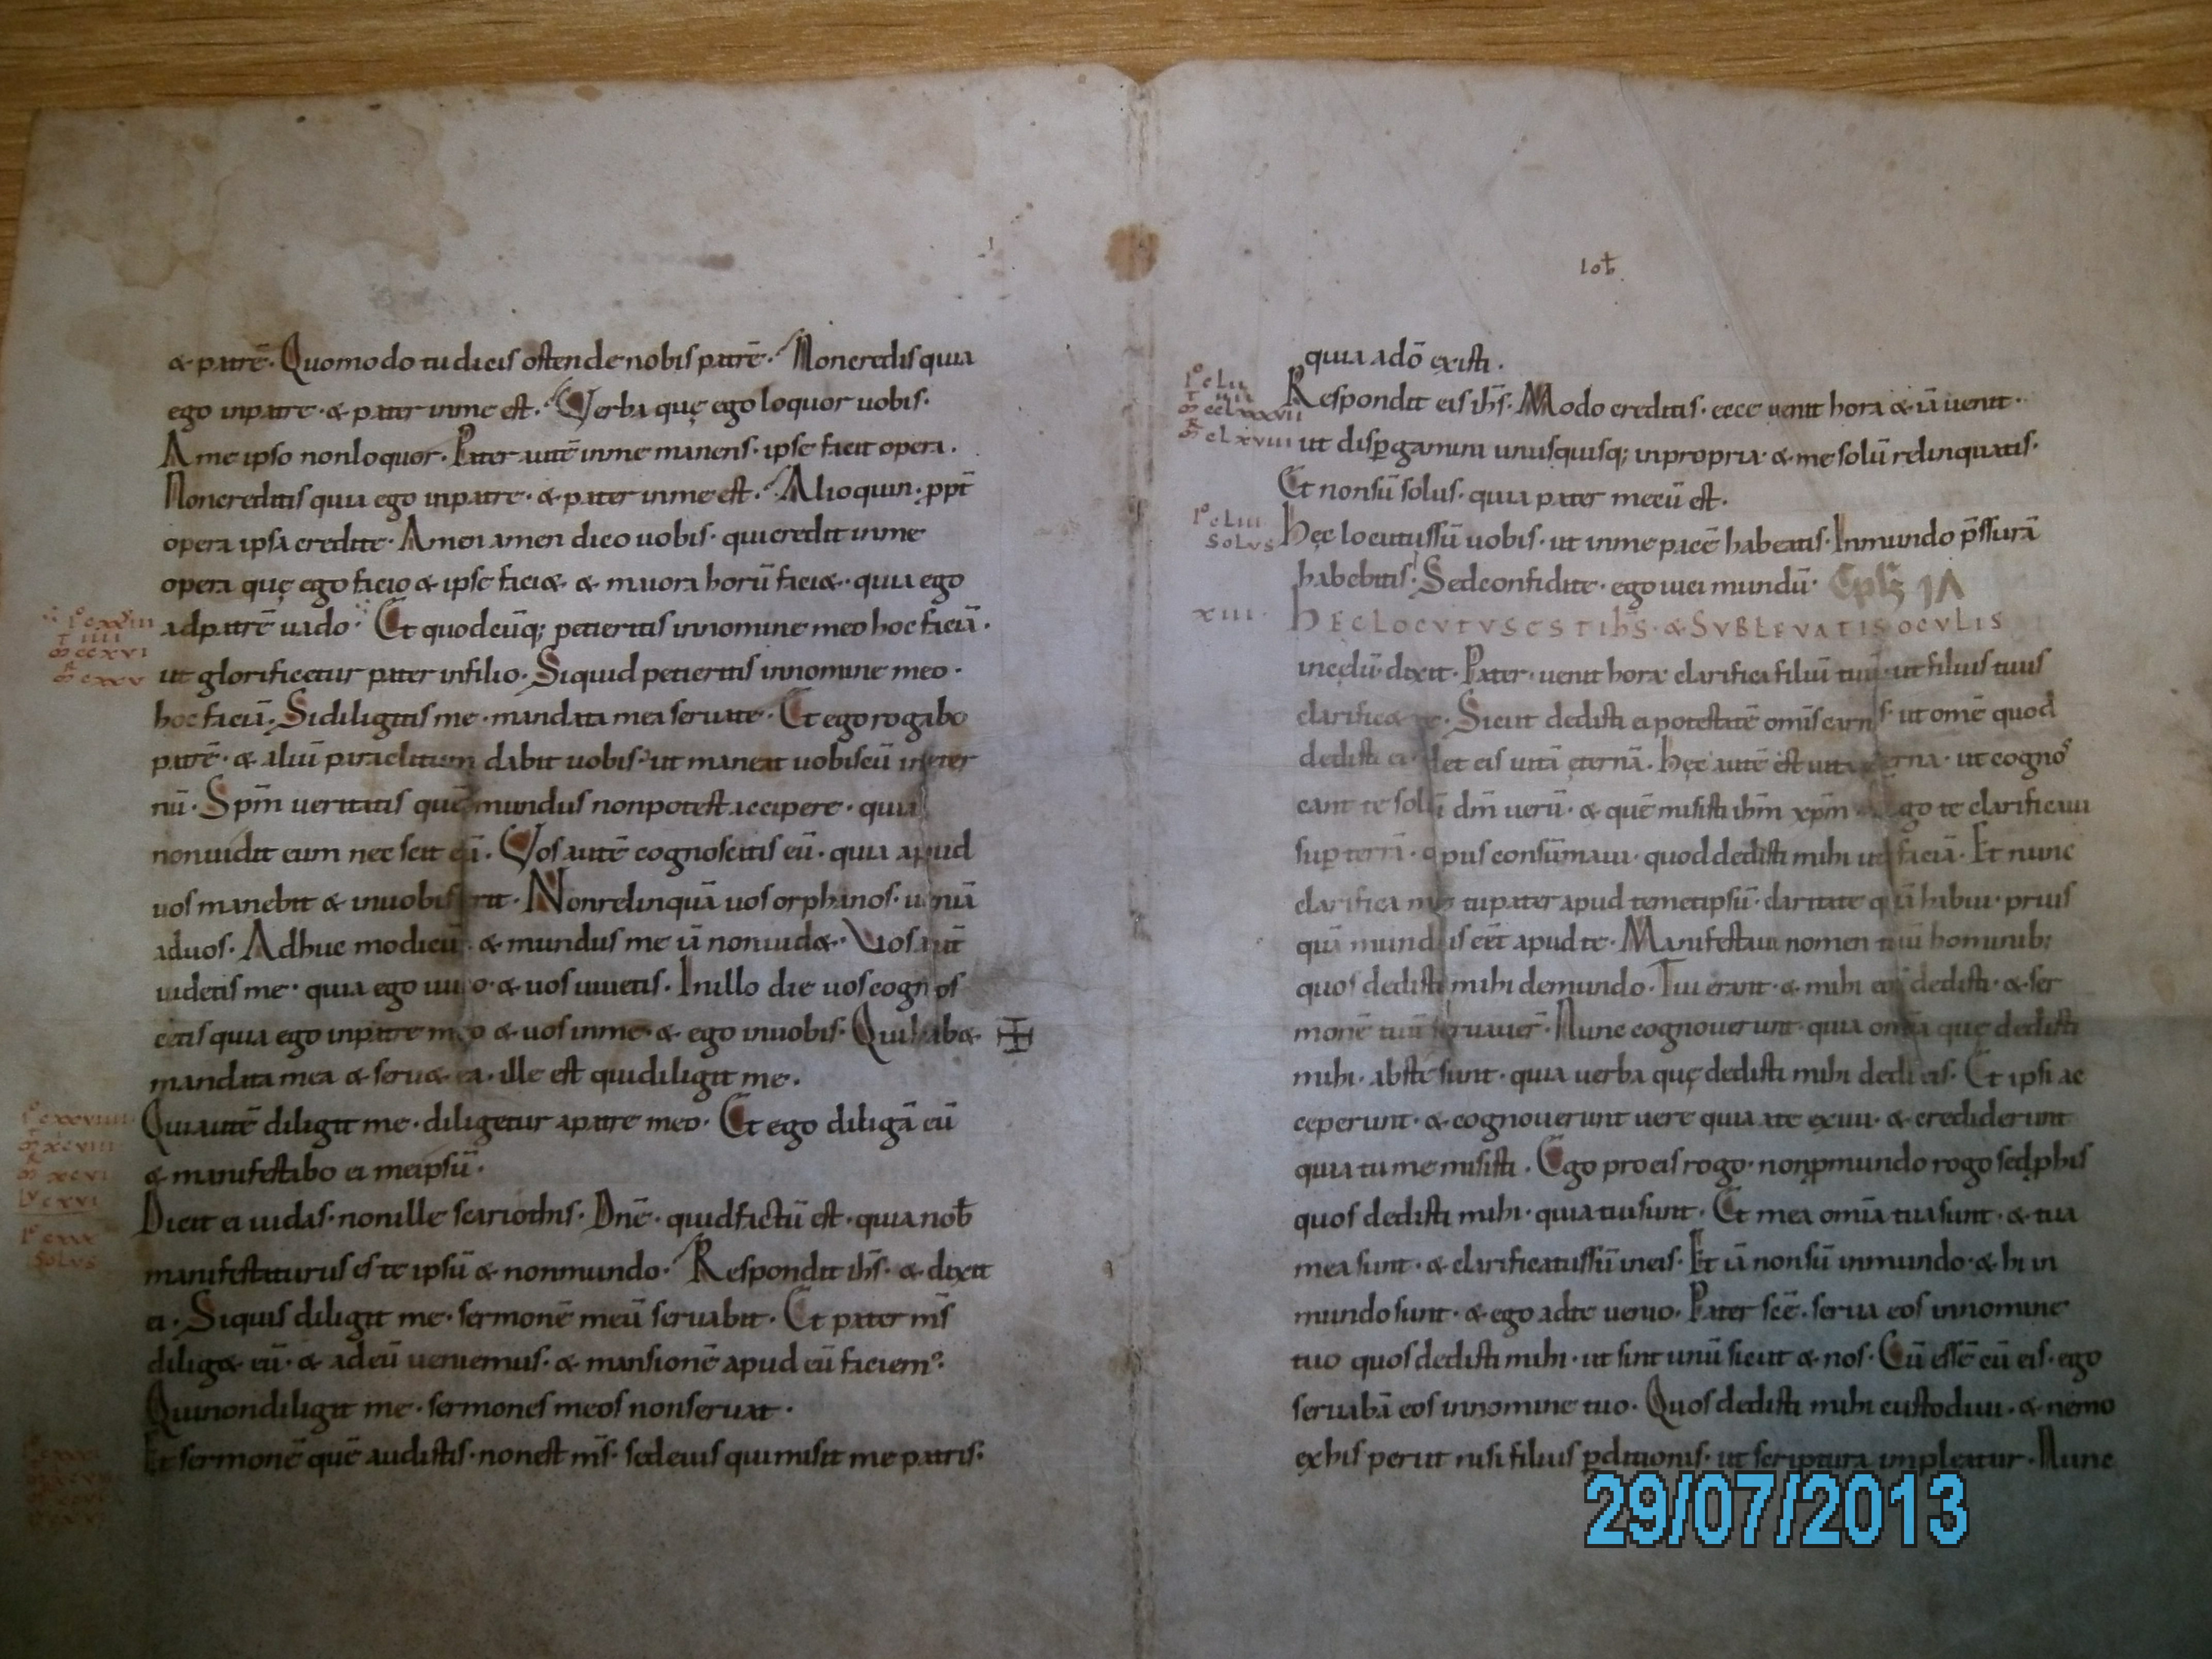 & patrē· Quomodo tu dicis ostende nobis patrē· Non credis quia
ego in patre· & pater in me est· Verba quę ego loquor uobis·
A me ipso non loquor· Pater autē in me manens· ipse facit opera·
Non creditis quia ego in patre· & pater in me est· Alioquin· ppt̄
opera ipsa credite· Amen amen dico uobis· qui credit in me
opera quę ego facio & ipse faci&· & maiora horū faci&· quia ego
ad patrē uado· Et quodcūq; petieritis in nomine meo hoc faciā·
ut glorificetur pater in filio· Si quid petieritis in nomine meo·
hoc faciā· Si diligitis me· mandata mea seruate· Et ego rogabo
patrē· & aliū paraclitum dabit uobis· ut maneat uobiscū in &er
nū· Sp̄m ueritatis quē mundus non potest accipere· quia
non uidit eum nec scit eū· Vos autē cognoscitis eū· quia apud
uos manebit & in uobis erit· Non relinquā uos orphanos· ueniā
ad uos· Adhuc modicū· & mundus me iā non uid&· Vos aut̄
uidetis me· quia ego uiuo· & uos uiuetis· In illo die uos cognos
cetis quia ego in patre meo & uos in me· & ego in uobis· Qui hab&·
mandata mea & seru& ea· ille est qui diligit me·
Qui autē diligit me· diligetur a patre meo· Et ego diligā eū
& manifestabo ei meipsū·
Dicit ei iudas· non ille scariothis· Dn̄e· quid factū est· quia nob̄
manifestaturus es te ipsū & non mundo· Respondit ih̄s· & dixit
ei· Si quis diligit me· sermonē meū seruabit· Et pater m̄s
dilig& eū· & ad eū ueniemus· & mansionē apud eū faciem9·
Qui non diligit me· sermones meos non seruat·
Et sermonē quē audistis· non est m̄s· sed eius qui misit me patris·
ioh̄
quia a dō existi·
Respondit eis ih̄s· Modo creditis· ecce uenit hora & iā uenit·
ut disꝑgamini unusquisq; in propria & me solū relinquatis·
Et non sū solus· quia pater mecū est·
Hęc locutus sū uobis· ut in me pacē habeatis· In mundo p̄ssurā
habebitis· Sed confidite· ego uici mundū·
XIII· HEC LOCVTVS EST IHS· & SVBLEVATIS OCVLIS
in cęlū· dixit· Pater· uenit hora clarifica filiū tuū· ut filius tuus
clarific& te· Sicut dedisti ei potestatē omīs carnis· ut omē quod
dedisti ei det eis uitā ęternā· Hęc autē est uita ęterna· ut cognos
cant te solū dm̄ uerū· & quē misisti ihm̄ xpm̄ Ego te clarificaui
sup terrā· opus consūmaui· quod dedisti mihi ut faciā· Et nunc
clarifica me tu pater apud temetipsū· claritate quā habui· prius
quā mundus eēt apud te· Manifestaui nomen tuū hominib;
quos dedisti mihi de mundo· Tui erant· & mihi eos dedisti· & ser
monē tuū seruauer̄· Nunc cognouerunt· quia omīa quę dedisti
mihi· abs te sunt· quia uerba quę dedisti mihi dedi eis· Et ipsi ac
ceperunt· & cognouerunt uere quia a te exiui· & crediderunt
quia tu me misisti· Ego pro eis rogo· non ꝓ mundo rogo sed ꝓ his
quos dedisti mihi· quia tui sunt· Et mea omīa tua sunt· & tua
mea sunt· & clarificatus sū in eis· Et iā non sū in mundo· & hi in
mundo sunt· & ego ad te uenio· Pater scē· serua eos in nomine
tuo quos dedisti mihi· ut sint unū sicut & nos· Cū essē cū eis· ego
seruabā eos in nomine tuo· Quos dedisti mihi custodiui· & nemo
ex his periit nisi filius ꝑditionis· ut scriptura impleatur· Nunc
29/07/2013